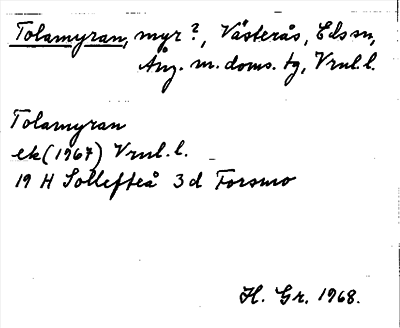 Tolamyran, myr?, Västerås, Eds sn,
Ång. m. doms. tg, Vrnl. l.
Tolamyran
ek (1967) Vrnl. l.
19 H Sollefteå 3 d Forsmo
H. Gr. 1968.